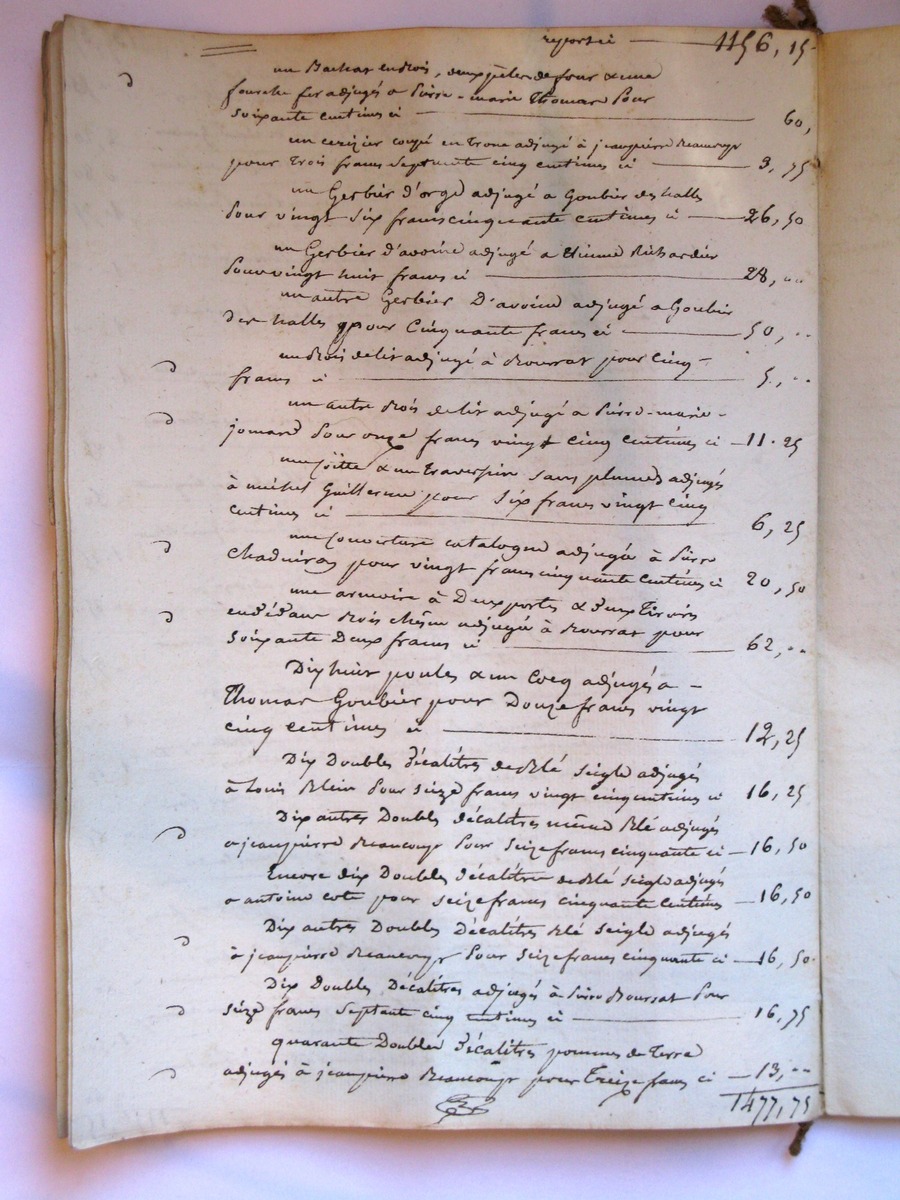 reporté 1156, 15
un Bachat en Bois, deux pelles de four & une
fourche fer adjugés a Pierre-marie Thomas Pour
soixante centimes ci 60,
un cerizier coupé en tronc adjugé à jeanpierre Beaucoup
pour trois francs septente cinq centimes ci 3, 75
un Gerbier d'orge adjugé a Goubier des halles
Pour vingt six francs cinquante centimes ci 26, 50
un Gerbier d'avoine adjugé a Etienne Richardier
Pour vingt huit francs ci 28, ..
un autre Gerbier D'avoine adjugé a Goubier
des halles pour Cinquante francs ci 50, ..
un Bois de lit adjugé à Bourrat pour Cinq
francs ci 5, ..
un autre Bois de lit adjugé a Pierre-marie
jomard Pour onze francs vingt cinq centimes ci 11. 25
& un traversin sans plumes adjugés
à michel Guillerme pour six francs vingt cinq
centimes ci 6, 25
une couverture catalogne adjugée à Pierre
pour vingt francs cinquante centimes ci 20, 50
une armoire à Deux portes & deux Tiroirs
Bois chêne adjugée à Bourrat pour
soixante Deux francs ci 62, ..
Dix huit poules & un Cocq adjugés a
Thomas Goubier pour Douze francs vingt
cinq centimes ci 12, 25
Dix Doubles Décalitres de Blé seigle adjugés
à Louis Blein Pour seize francs vingt cinq centimes ci 16, 25
Dix autres Doubles décalitres même Blé adjugés
a jeanpierre Beaucoup Pour seize francs cinquante ci 16, 50
Encore dix Doubles Décalitres de Blé seigle adjugés
a antoine cote pour seize francs cinquante centimes 16, 50
Dix autres Doubles Décalitres Blé seigle adjugés
à jeanpierre Beaucoup Pour seize francs cinquante ci 16, 50
Dix Doubles Décalitres adjugés à Pierre Bourrat Pour
seize francs septante cinq centimes ci 16, 75
quarante Doubles Décalitres pommes de Terre
adjugés à jeanpierre Beaucoup pour Treize francs ci 13, ..
1477, 75